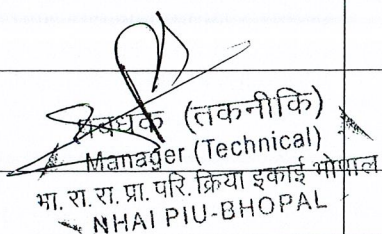 प्रबंधक (तकनीकि)
Manager (Technical)
भा. रा. रा. प्रा. परि. क्रिया इकाई भोपाल
NHAI PIU-BHOPAL